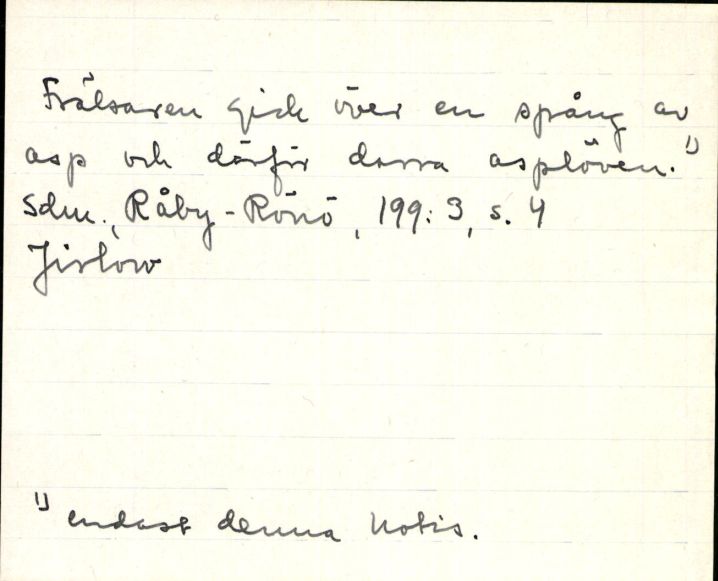 Frälsaren gick över en spång av
asp och därför darra asplöven." 1)
Sdm., Råby-Rönö, 199:3, s. 4
Jirlow
1) endast denna notis.